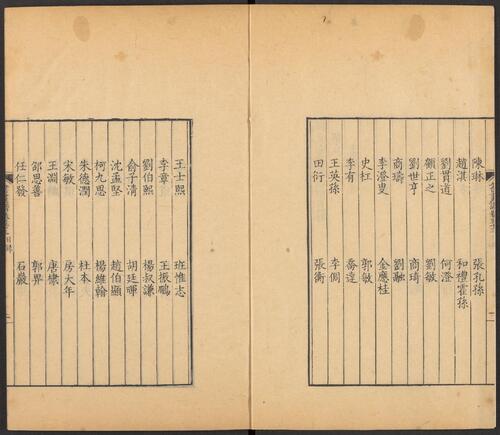 陳琳　張孔孫
趙淇　和禮霍孫
劉貫道　何澄
顧正之　劉敏
劉世亨　商琦
商璹　劉融
李澄叟　金應桂
史杠　郭敏
李有　喬達
王英孫　李倜
田衍　張衡
王士熙　班惟志
李章　王振鵬
劉伯熙　楊叔謙
俞子清　胡廷暉
沈孟堅　趙伯顯
柯九思　楊維翰
朱德潤　杜本
宋敏　房大年
王淵　唐棣
邵思善　郭畀
任仁發　石巖